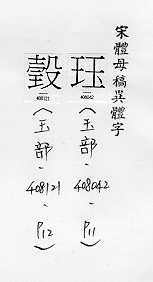 宋體母稿異體字
珏
408042
(玉部-408042-P11)
瑴
408121
(玉部-408121-P12)